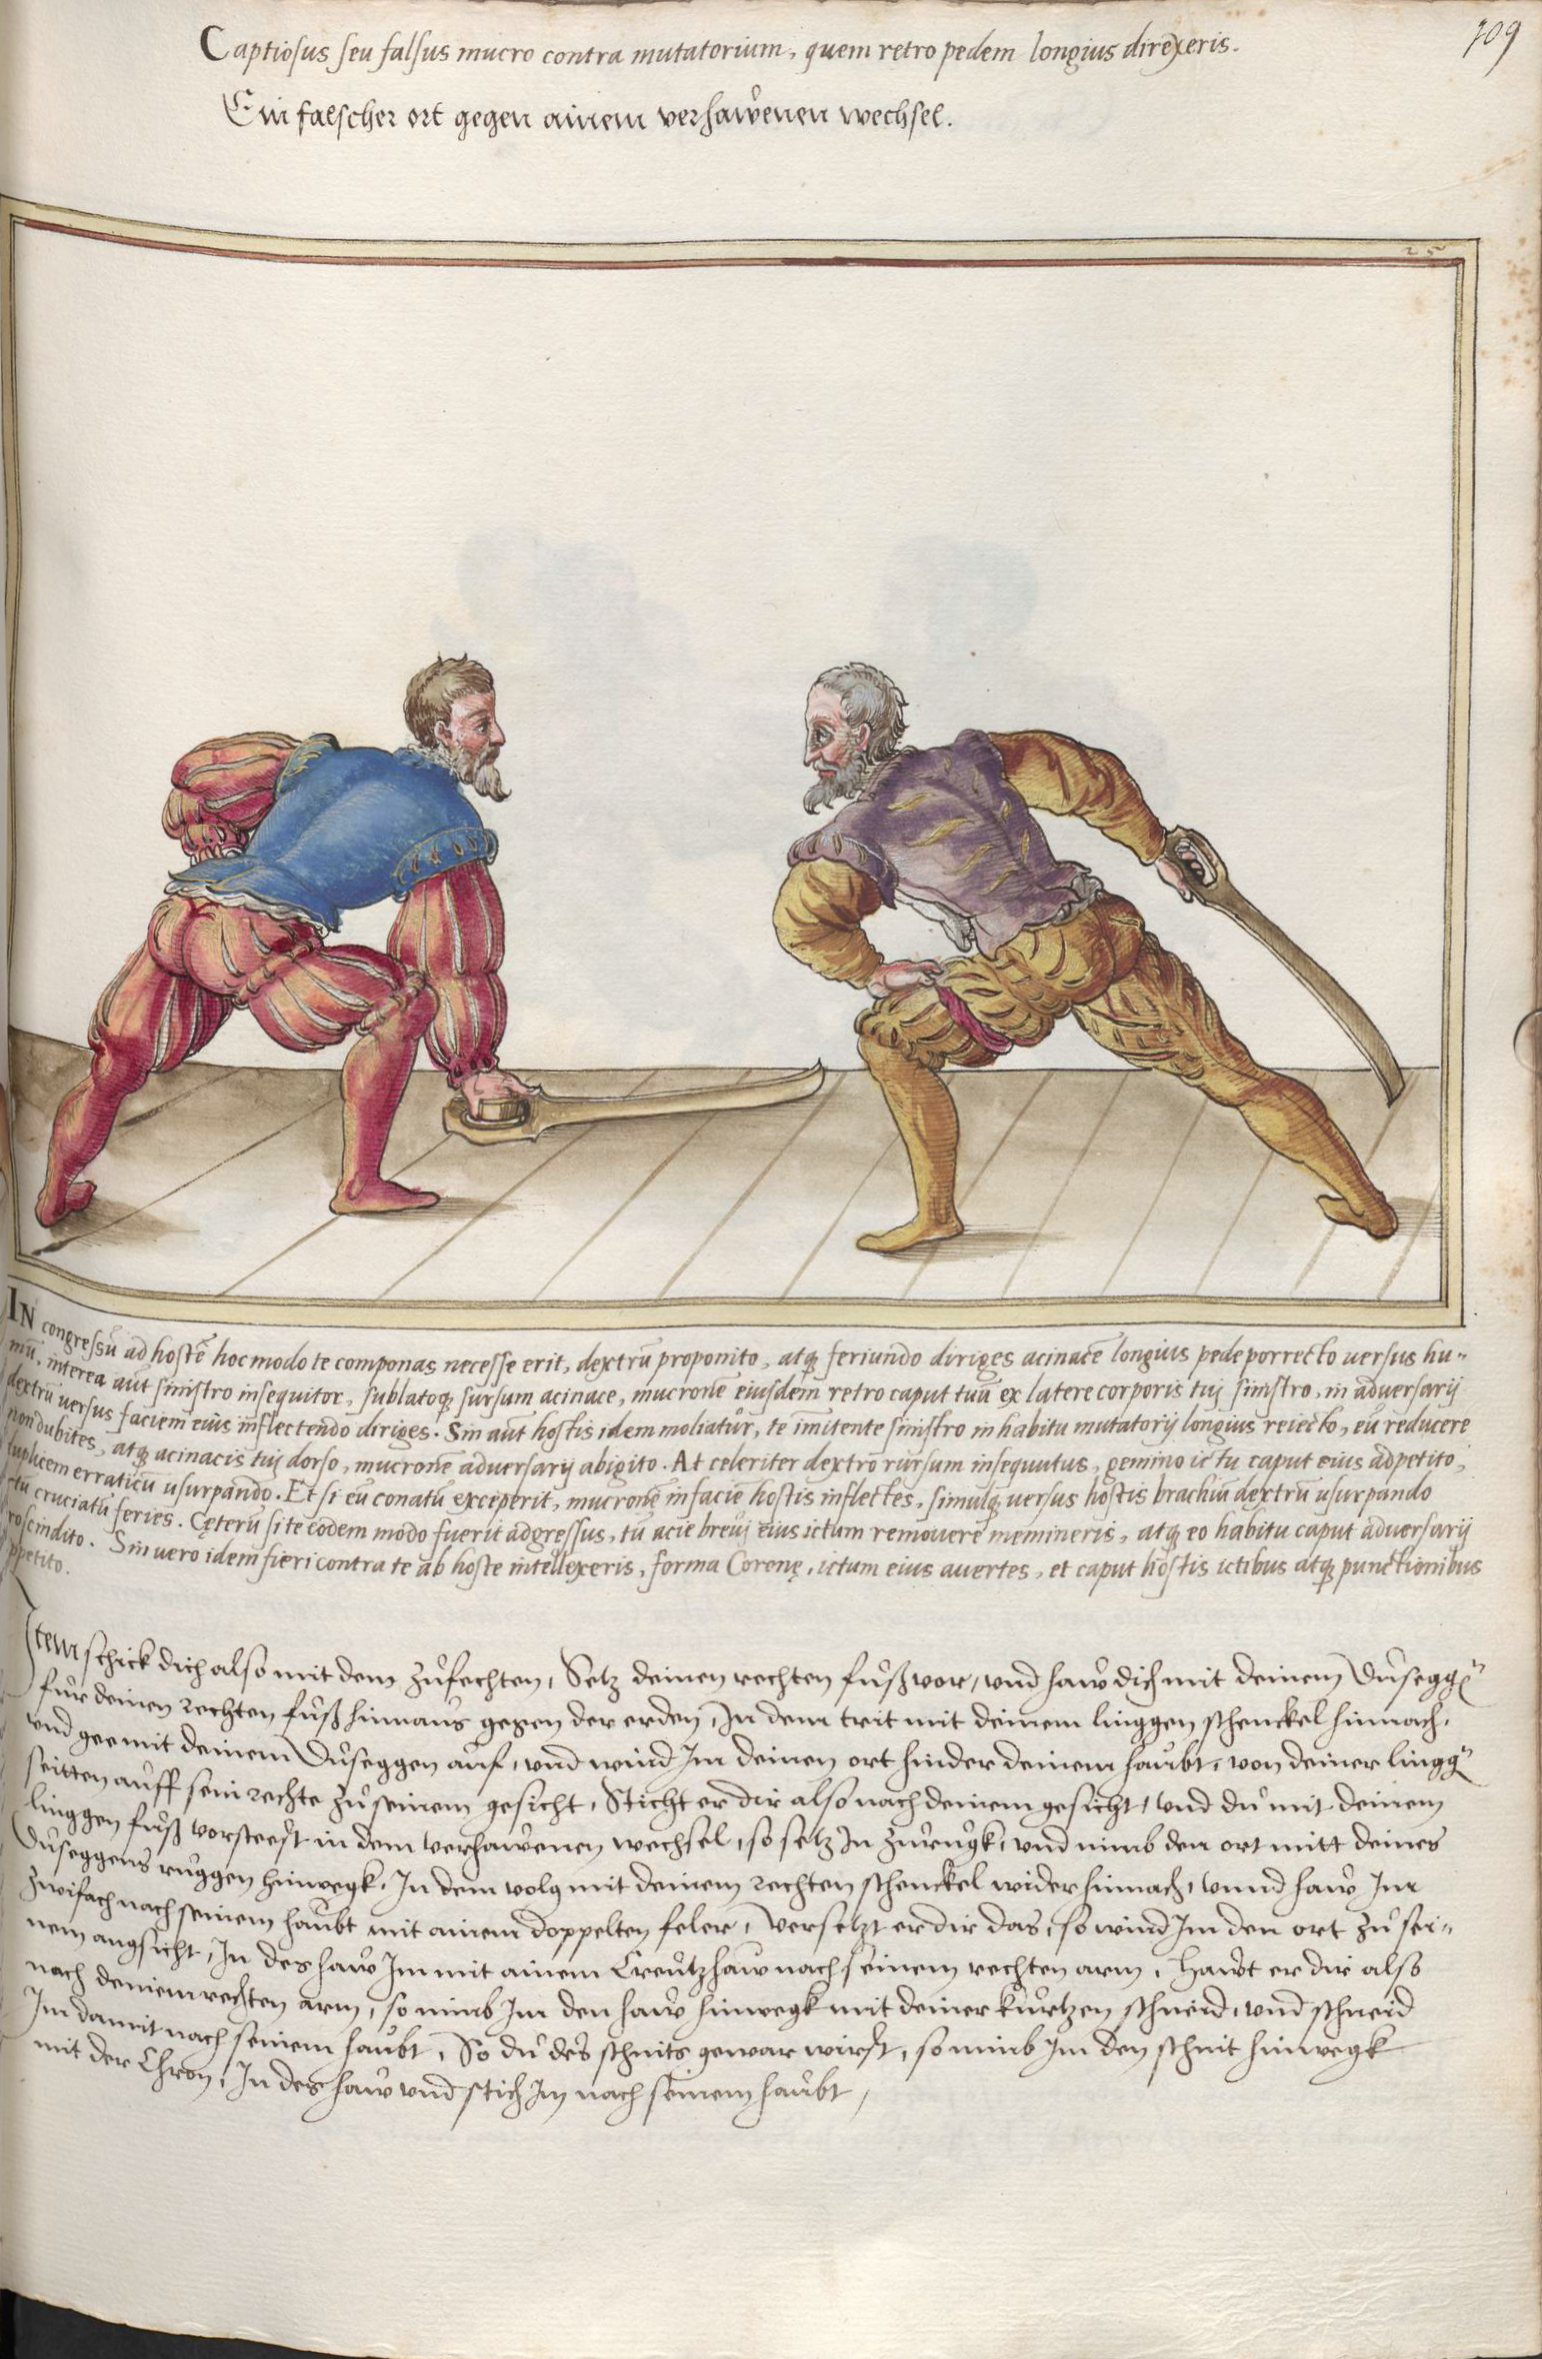 109
Captiosus seu falsus mucro contra mutatorium, quem retro pedem longius direxeris.
Ein falscher ort gegen ainem verhawenen wechsel.
25
IN congressu ad hostē hoc modo te componas necesse erit, dextrū proponito, atq feriundo diriges acinacē longius pede porrecto versus hu-
mū, interea aut sinistro insequitor, sublatoq sursum acinace, mucronē eiusdem retro caput tuū ex latere corporis tui sinistro, in adversarij
dextrū versus faciem eius inflectendo diriges. Sin aut hostis idem moliatur, te innitente sinistro in habitu mutatorij longius reiecto, eū reducere
non dubites, atq acinacis tui dorso, mucronē adversarij abigito. At celeriter dextro rursum insequutus, gemino ictu caput eius adpetito,
duplicem erraticū usurpando. Et si eū conatū exceperit, mucronē in faciē hostis inflectes, simulq versus hostis brachiū dextrū usurpando
cruciatū feries. Cęterū si te eodem modo fuerit adgressus, tū acie brevi eius ictum removere memineris, atq eo habitu caput adversarij
proscindito. Sin vero idem fieri contra te ab hoste intellexeris, forma Coronę, ictum eius avertes, et caput hostis ictibus atq punctionibus
appetito.
Item schick dich also mit dem zůfechten, Setz deinen rechten fůß vor, und haw dich mit deinem Dusegge
für deinen rechten fůß hinnaus gegen der erden, In dem trit mit deinem linggen schenckel hinnach,
und gee mit deinem Duseggen auf, und wind Im deinen ort hinder deinem haubt, von deiner lingg
seitten auff sein rechte zů seinem gesicht, Sticht er dir also nach deinem gesicht, und du mit deinem
linggen fůß vorsteest in dem verhawenen wechsel, so setz In zurugk, und nimb den ort mitt deines
Duseggens ruggen hinwegk, In dem volg mit deinem rechten schenckel wider hinnach, unnd haw Im
zwifach nach seinem haubt mit ainem doppelten feler, Versetzt er dir das, so wind Im den ort zů sei-
nem angsicht, In des haw Im mit ainem Creutzhaw nach seinem rechten arm, Hawt er dir also
nach deinem rechten arm, so nimb Im den haw hinwegk mit deiner kurtzen schneid, und schneid
Im damit nach seinem haubt, So du des schnits gewar wirst, so nimb Im den schnit hinwegk
mit der Chron, In des haw und stich Im nach seinem haubt,